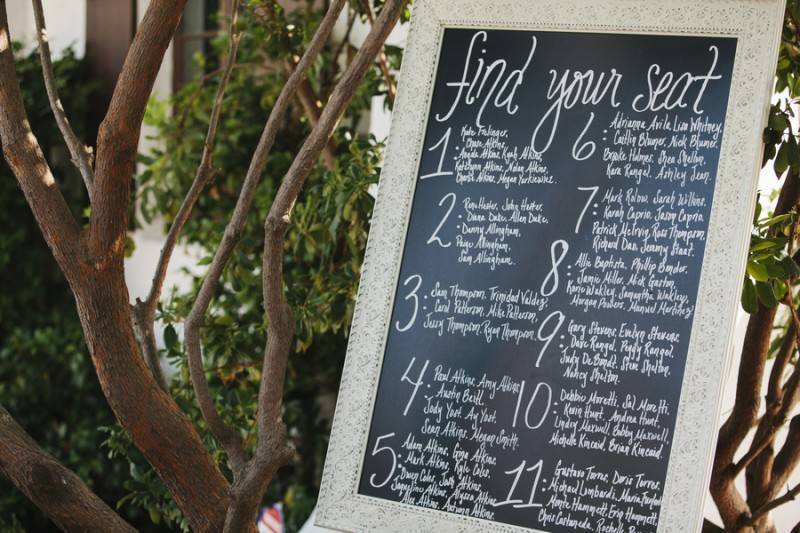 find your seat
1:
Chase Atkins,
Angela Atkins, Kyah Atkins,
Katelynn Atkins, Nolan Atkins,
Chantz Atkins, Megan Yurkiewicz.
2:
Ron Hester, John Hester,
Diana Dake, Allen Dake,
Danny Allingham,
Paige Allingham,
Sam Allingham.
3:
Sam Thompson, Trinidad Valdez,
Carol Patterson, Mike Patterson,
Jerry Thompson, Ryan Thompson.
4:
Paul Atkins, Amy Atkins,
Austin
Jody Yost, Ax Yost,
Sean Atkins, Megan Smith.
5:
Adam Atkins, Gina Atkins,
Mark Atkins, Kyle Color,
Owen Color, Josh Atkins,
Atkins, Alyssa Atkins,
Alex Atkins, Atkins.
6:
Adrianna Avila, Lisa Whitney,
Caitlin Blumer, Nick Blumer,
Brooke Holmer, Shea Shelton,
Kara Rangel, Ashley Jean.
7:
Mark Robins, Sarah Wilkins,
Karah Caprio, Jason Caprio,
Patrick McIrvin, Ross Thompson,
Richard Dan, Jeremy Staat.
8:
Allie Baptista, Phillip Bander,
Jamie Miller, Nick Gaston,
Samantha Wakley,
Morgan Powers, Manuel Martinez
9:
Gary Stevens, Evelyn Stevens,
Dave Rangel, Peggy Rangel,
Judy DeBondt, Steve Shelton,
Nancy Shelton.
10:
Debbie Moretti, Sal Moretti,
Kevin Hunt, Andrea Hunt,
Lindsy Maxwell, Bobby Maxwell,
Michelle Kincaid, Brian Kincaid.
11:
Gustavo Torres, Doris Torres,
Michael Lombardi, Maria
Monte Hammett, Erin Hammett,
Chris Castaneda, Rochelle